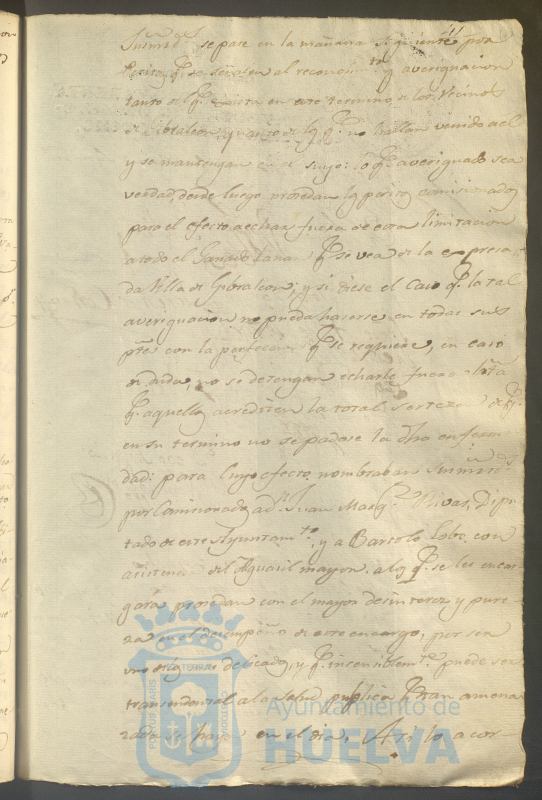 Susmrds. se pase en la mañana siguiente por
Peritos q.e se señalen al reconocim.to y averiguacion
tanto del q.e en este termino, de los Vecinos
de Gibraleon, y quanto de los q.e no hallan venido a el
y se mantengan en el suyo: lo q.e averiguado sea
verdad, desde luego procedan los peritos comisionados
para el efecto, a echar fuera de esta limitacion
a todo el Ganado Lanar q.e se vea de la expresa
da Villa de Gibraleon; y si diese el caso q.e la tal
averiguacion no pueda hacerse en todas sus
p.tes con la perfeccion q.e se requiede, en caso
de duda, no se detengan echarle fuera hasta
q.e aquellos acrediten la total serteza de q.e
en su termino no se padase la dha enferme
dad: para cuyo efecto nombraban Susmrds.
por Comisionado, a d.n Juan Marq.z Rivas, Dipu
tado de este Ayuntam.to y a Bartolo Lobo, con
asistencia del Aguasil mayor: a los q.e se les encar
gará procedan con el mayor desinteres, y pure
za en el desempeño de este encargo, por ser
uno de los mas delicado, y q.e insensiblem.te puede ser
transendental a la salud publica tan amena
zada se haya en el dia. Asi lo acor-
PORTUS MARIS ET TERRAE CUSTODIA
Ayuntamiento de
HUELVA